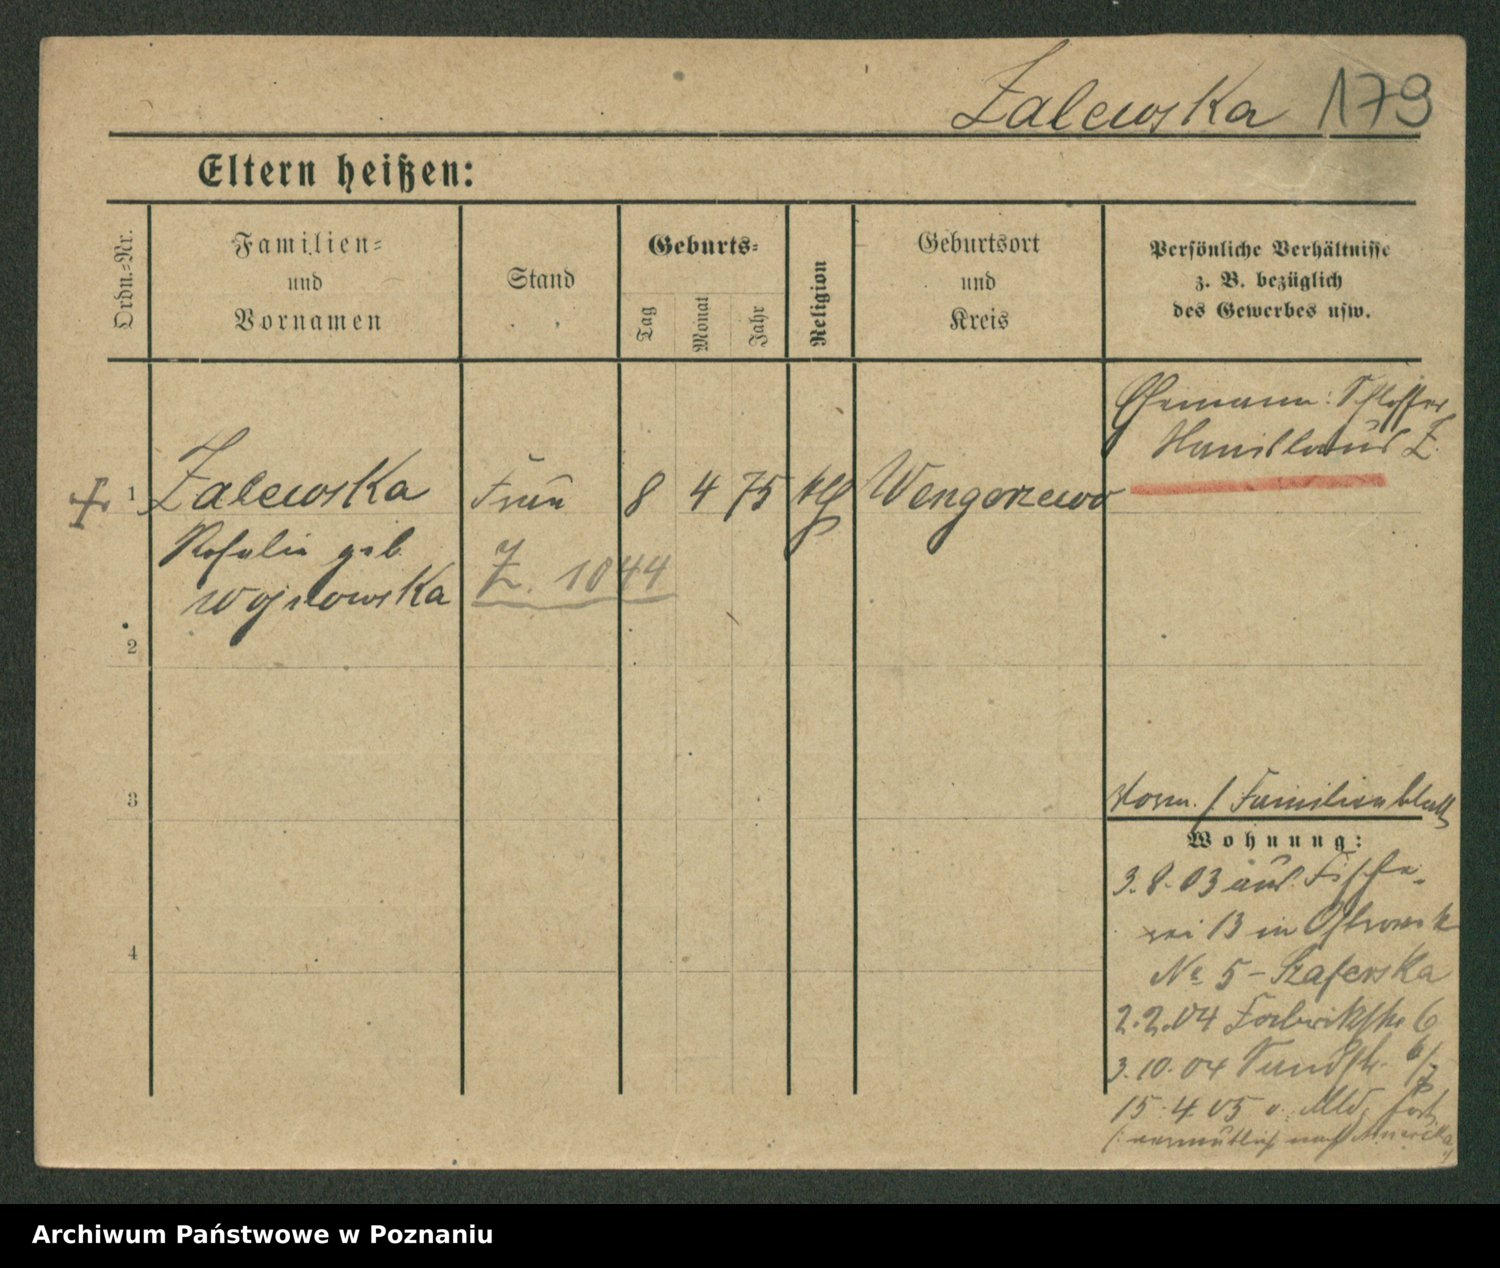 Zalewska 179
Eltern heißen:
Ordn.=Nr.
Familien=
und
Vornamen
Stand
Geburts=
Tag
Monat
Jahr
Religion
Geburtsort
und
Kreis
Persönliche Verhältnisse
z. B. bezüglich
des Gewerbes usw.
Ehemann: Schlosser
Stanislaus Z.
1 Zalewska Frau 8 4 75 kth Wengorzewo
Rosalie geb.
Z. 1044
2
3
Familienblatt
Wohnung:
3.8.03 aus Fische-
rei 13 in Ostrowek
4
No 5 - Szaferska
2.2.04 Fabrikstr 6
3.10.04
15.4.05 o. Mld. fort
(: vermutlich nach Amerika
Archiwum Państwowe w Poznaniu